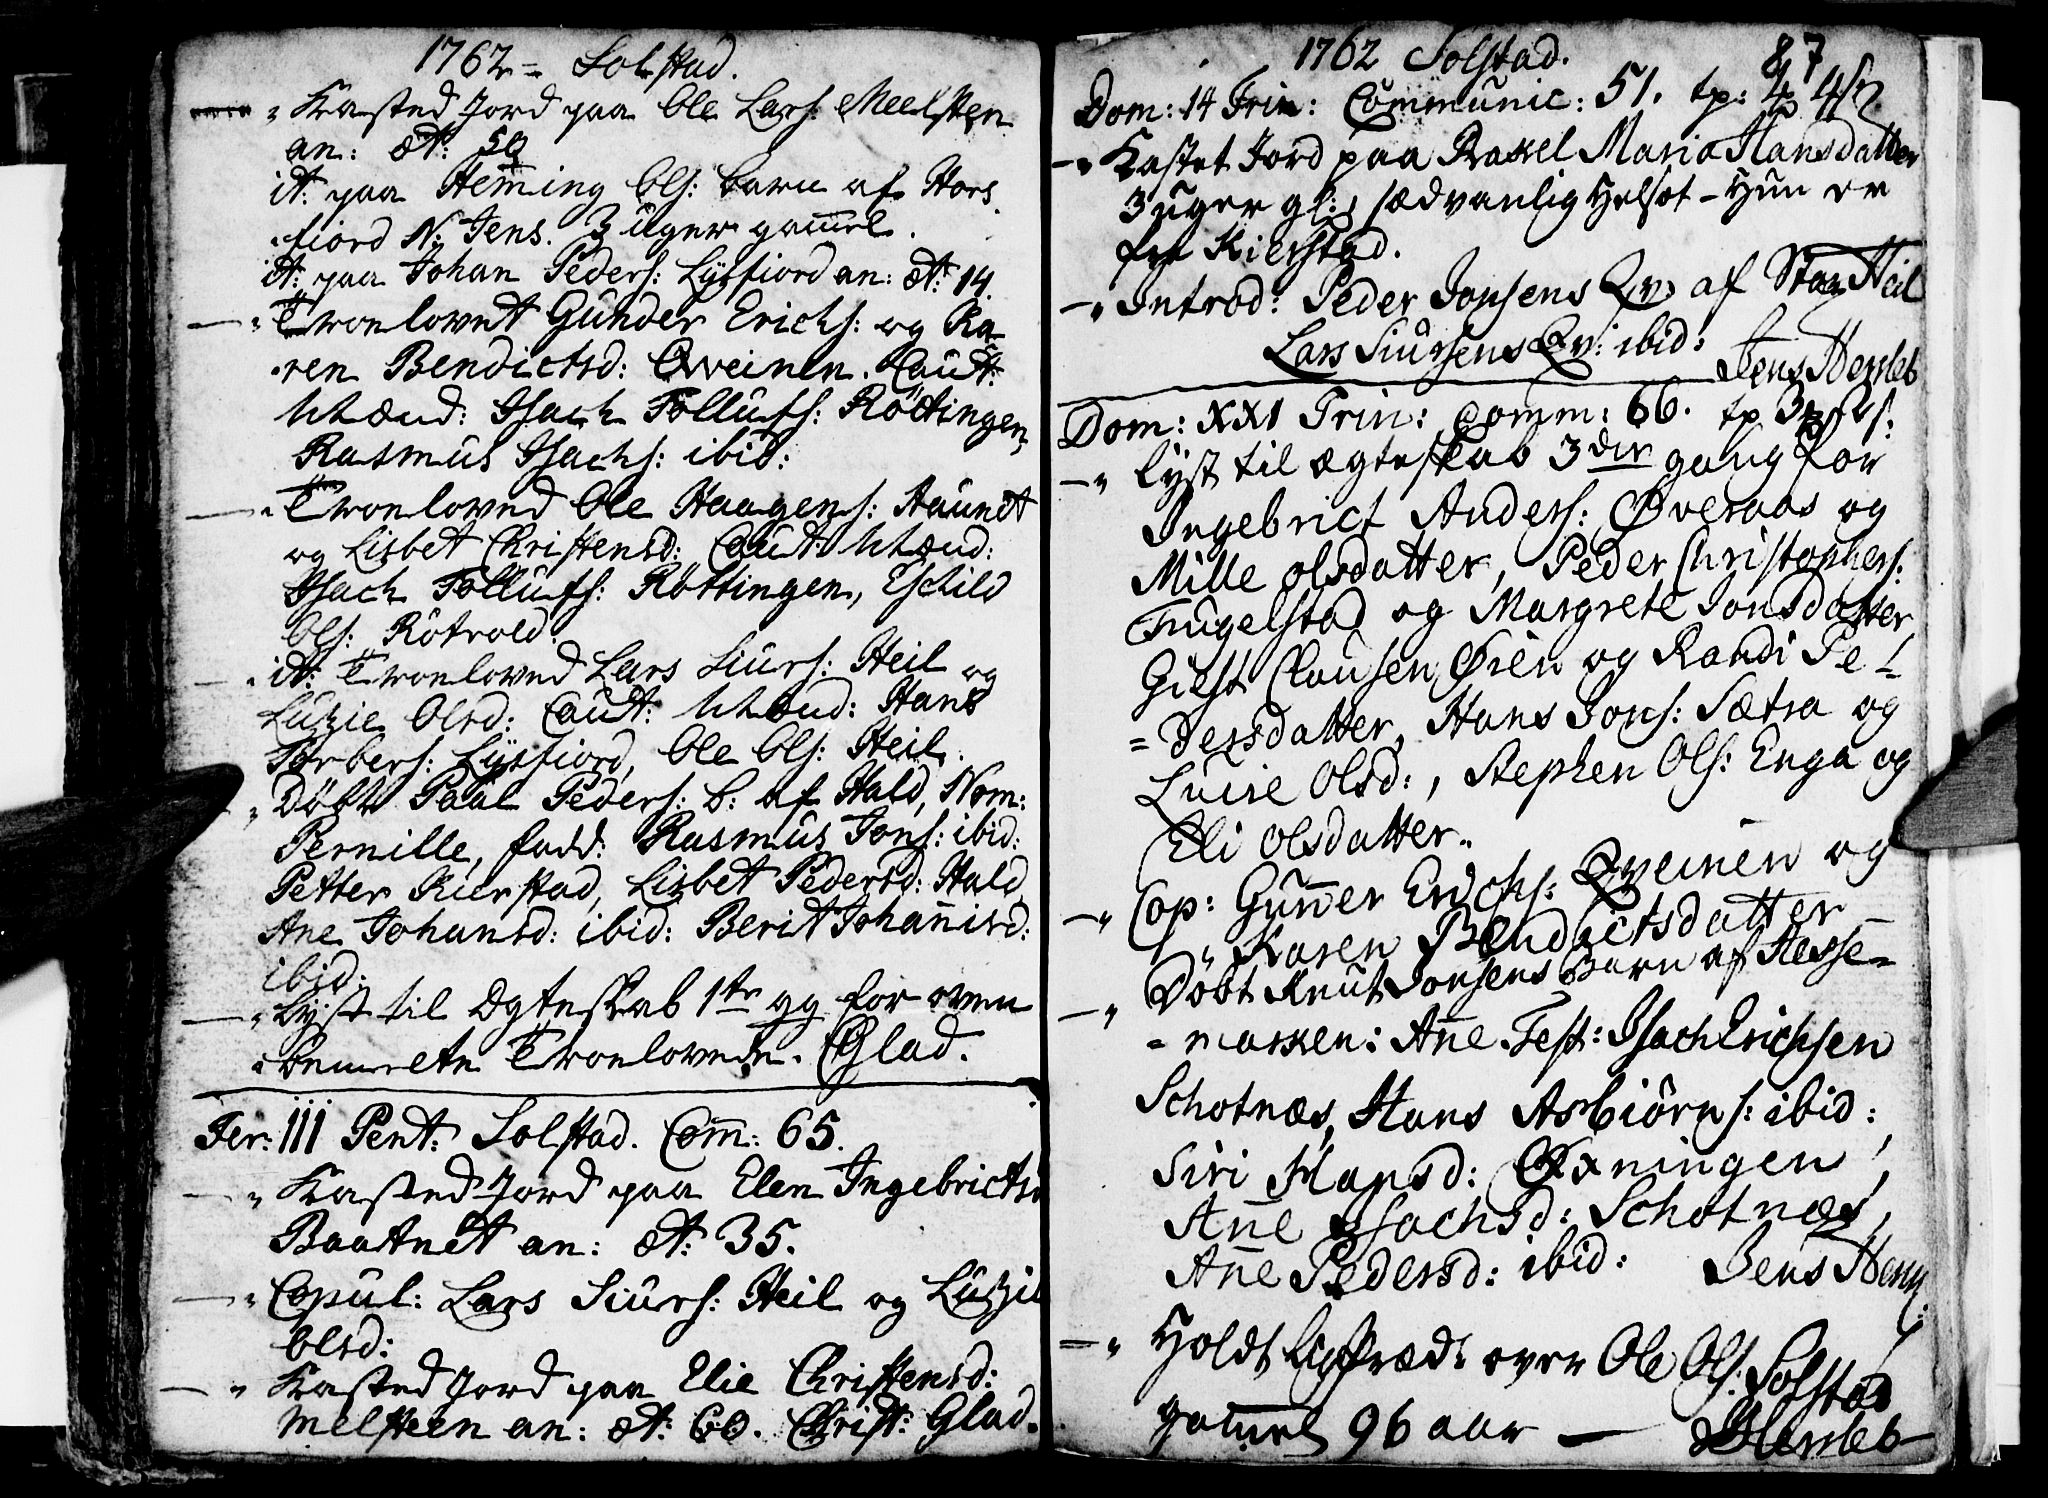 1762 = Solstad.
„ Kasted Jord paa Ole Lars: Meelsten
an: æt: 50
it: paa Hem̅ing Ols: barn af Hors
fiord N: Jens. 3 uger gam̅el.
it: paa Johan Peders: Lysfiord an: æt: 14.
— „ Troelovet Gunder Erichs: og Ka-
ren Bendictsd: Qveinen. Caut:
Mænd: Isach Tollufs: Röttingen,
Rasmus Isachs: ibid:
— „ Troeloved Ole Haagens: Haünet
og Lisbet Christensd: Caut: Mænd:
Isach Tollufs: Röttingen, Eschild
Ols: Rötvold.
— „ it: Troeloved Lars Siurs: Heil og
Lutzie Olsd: Caut: Mænd: Hans
Torbers: Lysfiord, Ole Ols: Heil.
„ Döbt Paal Peders: b: af Hald, Nom:
Pernille, fadd: Rasmus Jons: ibid:
Petter Kierstad, Lisbet Pedersd: Hald
Ane Johansd: ibid: Berit Johan̅isd:
ibid:
— „ Lyst til Ægteskab 1te gg for oven
benævnte Troelovede. CGlad.
Fer: III Pent: Solstad. Com̅: 65.
— „ Kasted Jord paa Elen Ingebrictsd
Baatnet an: æt: 35.
— „ Copul: Lars Siurs: Heil og Lutzie
Olsd:
— „ Kasted Jord paa Elie Christensd:
Melsteen an: æt: 60. Christ: Glad.
1762 Solstad. 87
Dom: 14 Trin: Communic: 51. tp:
— „ Kastet Jord paa Rakel Maria Hansdatter
3 uger gl:, sædvanlig Helsot - Hun er
fra Kierstad.
— „ Introd: Peder Jonsens Qv: af Heil
Lars Siursens Qv: ibid: Jens Hersleb
Dom: XXI Trin: Comm: 66. tp
— „ Lyst til ægteskab 3die gang for
Ingebrict Anders: Øveraas og
Mille Olsdatter, Peder Christophers:
Fugelstad og Margrete Jonsdatter,
Giert Clausen Øien og Randi Pe-
= dersdatter, Hans Jons: Sætra og
Lucie Olsd:, Stephen Ols: Enga og
Eli Olsdatter.
— „ Cop: Gun̅er Erichs: Qveinen og
„ Karen Bendictsdatter —
— „ Döbt Knut Jonsens Barn af Hesse-
= marken: An̅e Test: Isach Erichsen
Schotnæs, Hans Asbiörns: ibid:
Siri Hansd: Øxningen,
An̅e Isachsd: Schotnæs,
An̅e Pedersd: ibid: Jens Hersl:
— „ Holdt Ligpræd: over Ole Ols: Solstad
gam̅el 96 aar — JHersleb